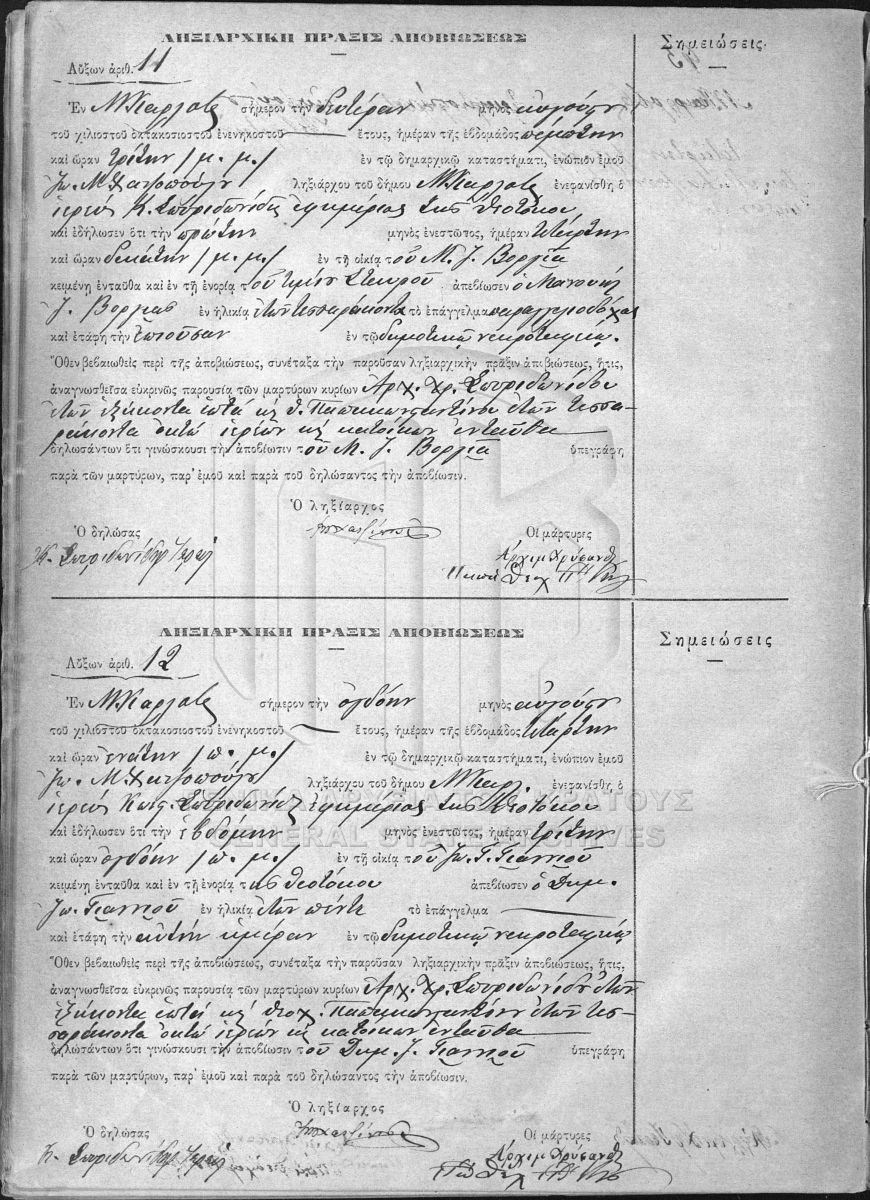 ΛΗΞΙΑΡΧΙΚΗ ΠΡΑΞΙΣ ΑΠΟΒΙΩΣΕΩΣ
Σημειώσεις.
Αὔξων ἀριθ. 11
Ἐν Μ. Καρλοβᾳ σήμερον τὴν δευτέραν μηνὸς αὐγούστου
τοῦ χιλιοστοῦ ὀκτακοσιοστοῦ ἐνενηκοστοῦ — ἔτους, ἡμέραν τῆς ἑβδομάδος πέμπτην
καὶ ὥραν τρίτην /μ. μ./ ἐν τῷ δημαρχικῷ καταστήματι, ἐνώπιον ἐμοῦ
Ἰω. Μ. ληξιάρχου τοῦ δήμου ἐνεφανίσθη ὁ
ἱερεὺς Κ. Σπυριδωνίδης ἐφημέριος τῆς Θεοτόκου
καὶ ἐδήλωσεν ὅτι τὴν πρώτην μηνὸς ἐνεστῶτος, ἡμέραν τετάρτην
καὶ ὥραν δεκάτην /μ. μ./ ἐν τῇ οἰκίᾳ τοῦ Μ. Ἰ. Βοργιᾶ
κειμένῃ ἐνταῦθα καὶ ἐν τῇ ἐνορίᾳ τοῦ τιμίου Σταυροῦ ἀπεβίωσεν ὁ Μανουὴλ
Ἰ. Βοργιας ἐν ἡλικίᾳ ἐτῶν τεσσαράκοντα τὸ ἐπάγγελμα παραγγελιοδόχος
καὶ ἐτάφη τὴν ἐπιοῦσαν ἐν τῷ δημοτικῷ νεκροταφείῳ.
Ὅθεν βεβαιωθεὶς περὶ τῆς ἀποβιώσεως, συνέταξα τὴν παροῦσαν ληξιαρχικὴν πρᾶξιν ἀποβιώσεως, ἥτις,
ἀναγνωσθεῖσα εὐκρινῶς παρουσίᾳ τῶν μαρτύρων κυρίων Ἀρχ. Χρ. Σπυριδωνίδου
ἐτῶν ἑξήκοντα ἑπτὰ κ Θ. Παπακωνσταντίνου ἐτῶν τεσσα-
ράκοντα ὀκτὼ ἱερέων κ κατοίκων ἐνταῦθα —
δηλωσάντων ὅτι γινώσκουσι τὴν ἀποβίωσιν τοῦ Μ. Ἰ. Βοργιᾶ ὑπεγράφη
παρὰ τῶν μαρτύρων, παρ' ἐμοῦ καὶ παρὰ τοῦ δηλώσαντος τὴν ἀποβίωσιν.
Ὁ ληξίαρχος
Ὁ δηλώσας
Οἱ μάρτυρες
Κ. Σπυριδωνίδης Ἱερεὺς
Ἀρχιμ Χρύσανθ
ΛΗΞΙΑΡΧΙΚΗ ΠΡΑΞΙΣ ΑΠΟΒΙΩΣΕΩΣ
Σημειώσεις
Αὔξων ἀριθ. 12
Ἐν Μ. Καρλοβᾳ σήμερον τὴν ὀγδόην μηνὸς αὐγούστου
τοῦ χιλιοστοῦ ὀκτακοσιοστοῦ ἐνενηκοστοῦ — ἔτους, ἡμέραν τῆς ἑβδομάδος τετάρτην
καὶ ὥραν ἐνάτην /π. μ./ ἐν τῷ δημαρχικῷ καταστήματι, ἐνώπιον ἐμοῦ
Ἰω. Μ. ληξιάρχου τοῦ δήμου ἐνεφανίσθη ὁ
ἱερεὺς Κωσ. Σπυριδωνίδης ἐφημέριος τῆς Θεοτόκου
καὶ ἐδήλωσεν ὅτι τὴν ἑβδόμην μηνὸς ἐνεστῶτος, ἡμέραν τρίτην
καὶ ὥραν ὀγδόην /π. μ./ ἐν τῇ οἰκίᾳ τοῦ Ἰω.
κειμένῃ ἐνταῦθα καὶ ἐν τῇ ἐνορίᾳ τῆς Θεοτόκου ἀπεβίωσεν ὁ Δημ.
Ἰω. ἐν ἡλικίᾳ ἐτῶν πέντε τὸ ἐπάγγελμα —
καὶ ἐτάφη τὴν αὐτὴν ἡμέραν ἐν τῷ δημοτικῷ νεκροταφείῳ
Ὅθεν βεβαιωθεὶς περὶ τῆς ἀποβιώσεως, συνέταξα τὴν παροῦσαν ληξιαρχικὴν πρᾶξιν ἀποβιώσεως, ἥτις,
ἀναγνωσθεῖσα εὐκρινῶς παρουσίᾳ τῶν μαρτύρων κυρίων Ἀρχ. Χρ. Σπυριδωνίδου ἐτῶν
ἑξήκοντα ἑπτὰ κ Θεοχ. Παπακωνσταντίνου ἐτῶν τεσ-
σαράκοντα ὀκτὼ ἱερέων κ κατοίκων ἐνταῦθα —
δηλωσάντων ὅτι γινώσκουσι τὴν ἀποβίωσιν τοῦ Δημ. Ἰ. ὑπεγράφη
παρὰ τῶν μαρτύρων, παρ' ἐμοῦ καὶ παρὰ τοῦ δηλώσαντος τὴν ἀποβίωσιν.
Ὁ ληξίαρχος
Ὁ δηλώσας
Οἱ μάρτυρες
Κ. Σπυριδωνίδης Ἱερεὺς
Ἀρχιμ Χρύσανθ
GENERAL STATE ARCHIVES